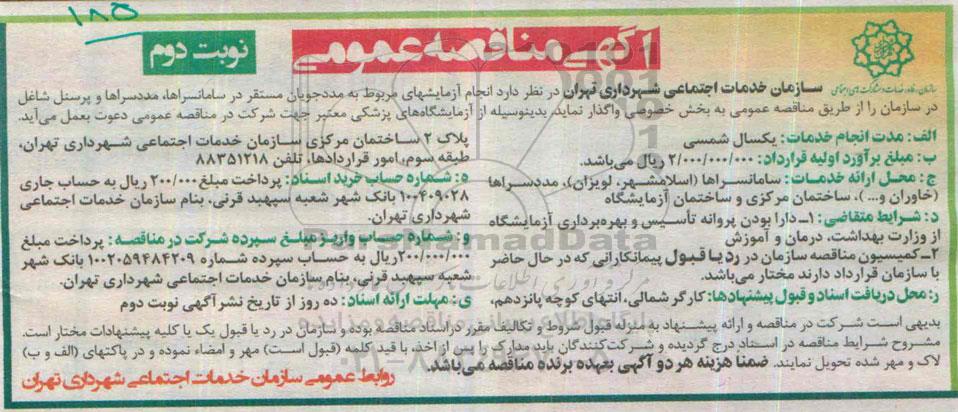 ۱۸۵
آگهی مناقصه عمومی
نوبت دوم
سازمان خدمات اجتماعی شهرداری تهران در نظر دارد انجام آزمایشهای مربوط به مددجویان مستقر در سامانسراها، مددسراها و پرسنل شاغل
در سازمان را از طریق مناقصه عمومی به بخش خصوصی واگذار نماید، بدینوسیله از آزمایشگاه‌های پزشکی معتبر جهت شرکت در مناقصه عمومی دعوت بعمل می‌آید.
الف: مدت انجام خدمات: یکسال شمسی
ب: مبلغ برآورد اولیه قرارداد: ۲/۰۰۰/۰۰۰/۰۰۰ ریال می‌باشد.
ج: محل ارائه خدمات: سامانسراها (اسلامشهر، لویزان)، مددسراها
(خاوران و...)، ساختمان مرکزی و ساختمان آزمایشگاه
د: شرایط متقاضی: ۱ـ دارا بودن پروانه تأسیس و بهره‌برداری آزمایشگاه
از وزارت بهداشت، درمان و آموزش
۲ـ کمیسیون مناقصه سازمان در رد یا قبول پیمانکارانی که در حال حاضر
با سازمان قرارداد دارند مختار می‌باشد.
ر: محل دریافت اسناد و قبول پیشنهادها: کارگر شمالی، انتهای کوچه پانزدهم،
پلاک ۲ ساختمان مرکزی سازمان خدمات اجتماعی شهرداری تهران،
طبقه سوم، امور قراردادها، تلفن ۸۸۳۵۱۲۱۸
ه: شماره حساب خرید اسناد: پرداخت مبلغ ۲۰۰/۰۰۰ ریال به حساب جاری
۱۰۰۴۰۹۰۲۸ بانک شهر شعبه سپهبد قرنی، بنام سازمان خدمات اجتماعی
شهرداری تهران.
و: شماره حساب واریز مبلغ سپرده شرکت در مناقصه: پرداخت مبلغ
۲۰۰/۰۰۰/۰۰۰ ریال به حساب سپرده شماره ۱۰۰۲۰۵۹۴۸۴۲۰۹ بانک شهر
شعبه سپهبد قرنی، بنام سازمان خدمات اجتماعی شهرداری تهران.
ی: مهلت ارائه اسناد: ده روز از تاریخ نشر آگهی نوبت دوم
بدیهی است شرکت در مناقصه و ارائه پیشنهاد به منزله قبول شروط و تکالیف مقرر در اسناد مناقصه بوده و سازمان در رد یا قبول یک یا کلیه پیشنهادات مختار است.
مشروح شرایط مناقصه در اسناد درج گردیده و شرکت‌کنندگان باید مدارک را پس از اخذ، با قید کلمه (قبول است) مهر و امضاء نموده و در پاکتهای (الف و ب)
لاک و مهر شده تحویل نمایند. ضمنا هزینه هر دو آگهی بعهده برنده مناقصه می‌باشد.
روابط عمومی سازمان خدمات اجتماعی شهرداری تهران